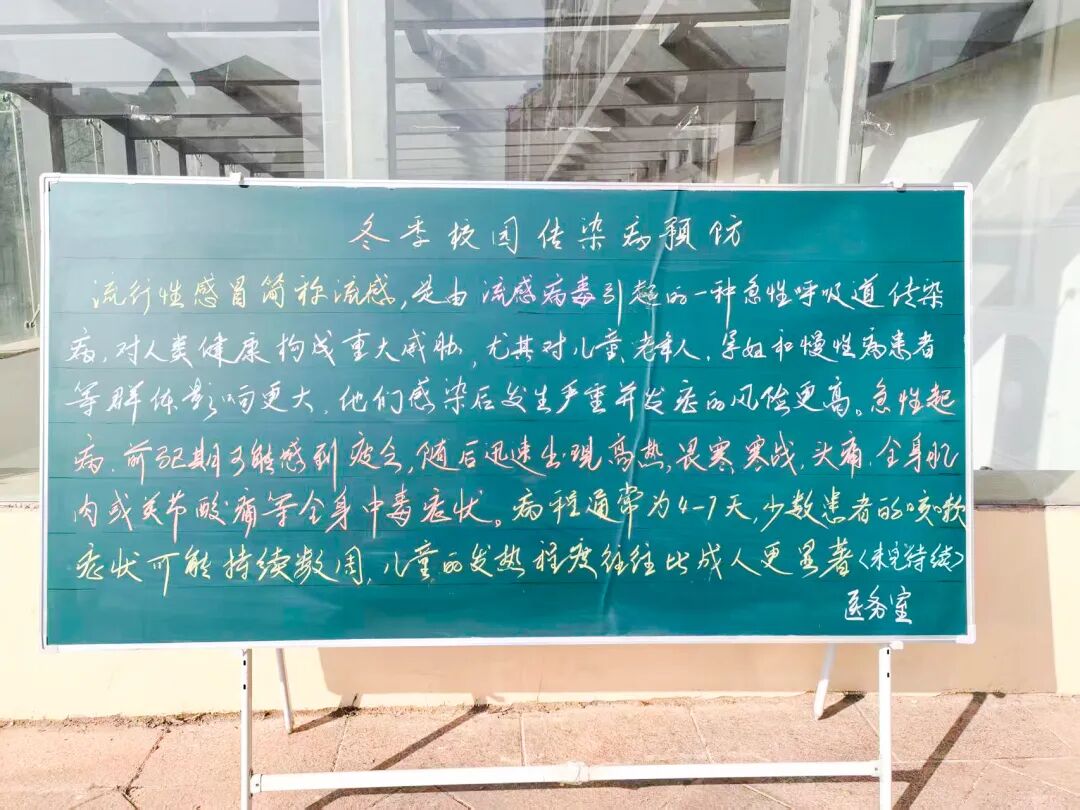 冬季校园传染病预防
流行性感冒简称流感,是由流感病毒引起的一种急性呼吸道传染
病,对人类健康构成重大威胁,尤其对儿童、老年人、孕妇和慢性病患者
等群体影响更大,他们感染后发生严重并发症的风险更高。急性起
病、前驱期可能感到疲乏,随后迅速出现高热、畏寒、寒战、头痛、全身肌
肉或关节酸痛等全身中毒症状。病程通常为4-7天,少数患者的咳嗽
症状可能持续数周,儿童的发热程度往往比成人更显著〈未完待续〉
医务室